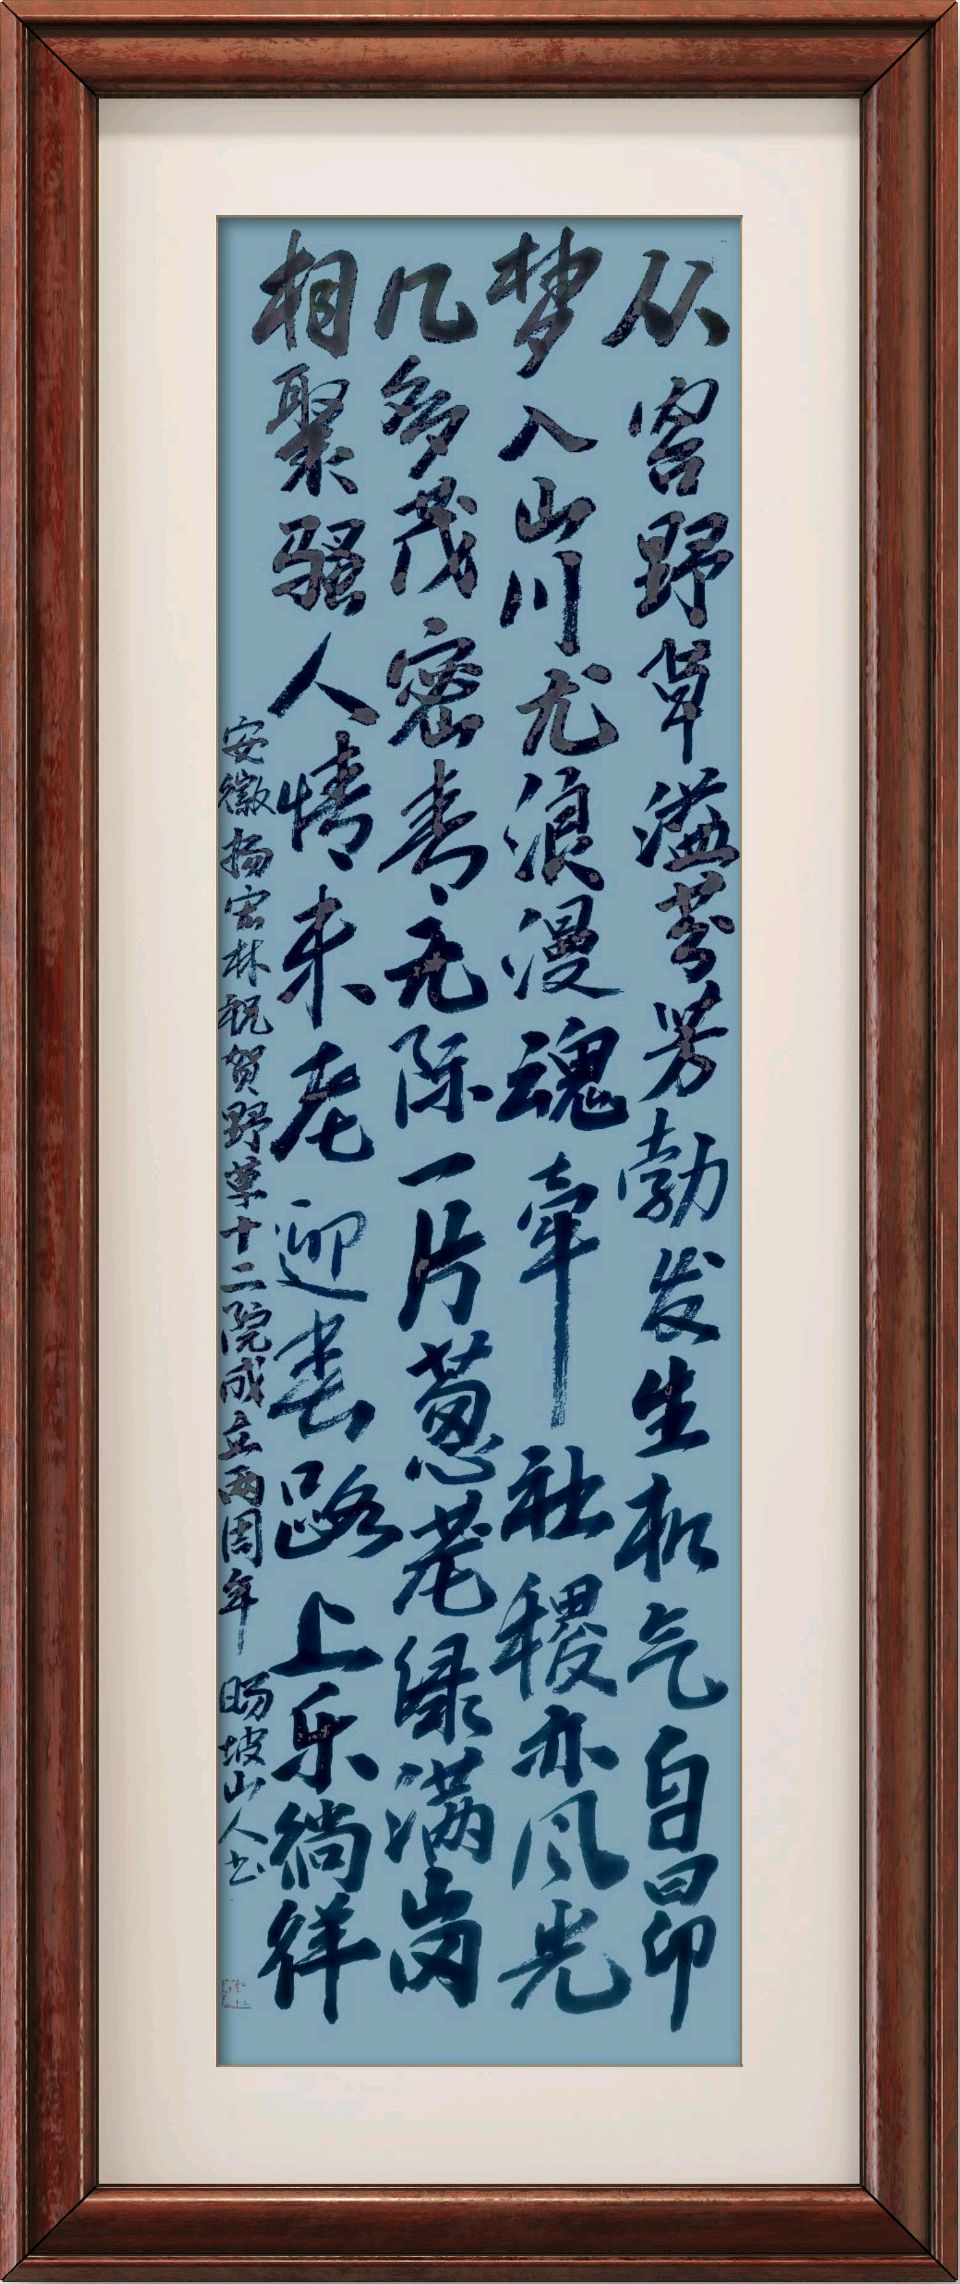 从容野草溢芬芳勃发生机气自昂
梦入山川尤浪漫魂牵社稷亦风光
几多茂密青无际一片葱茏绿满岗
相聚骚人情未老迎春路上乐徜徉
安徽杨宏林祝贺野草十二院成立两周年 旸坡山人书